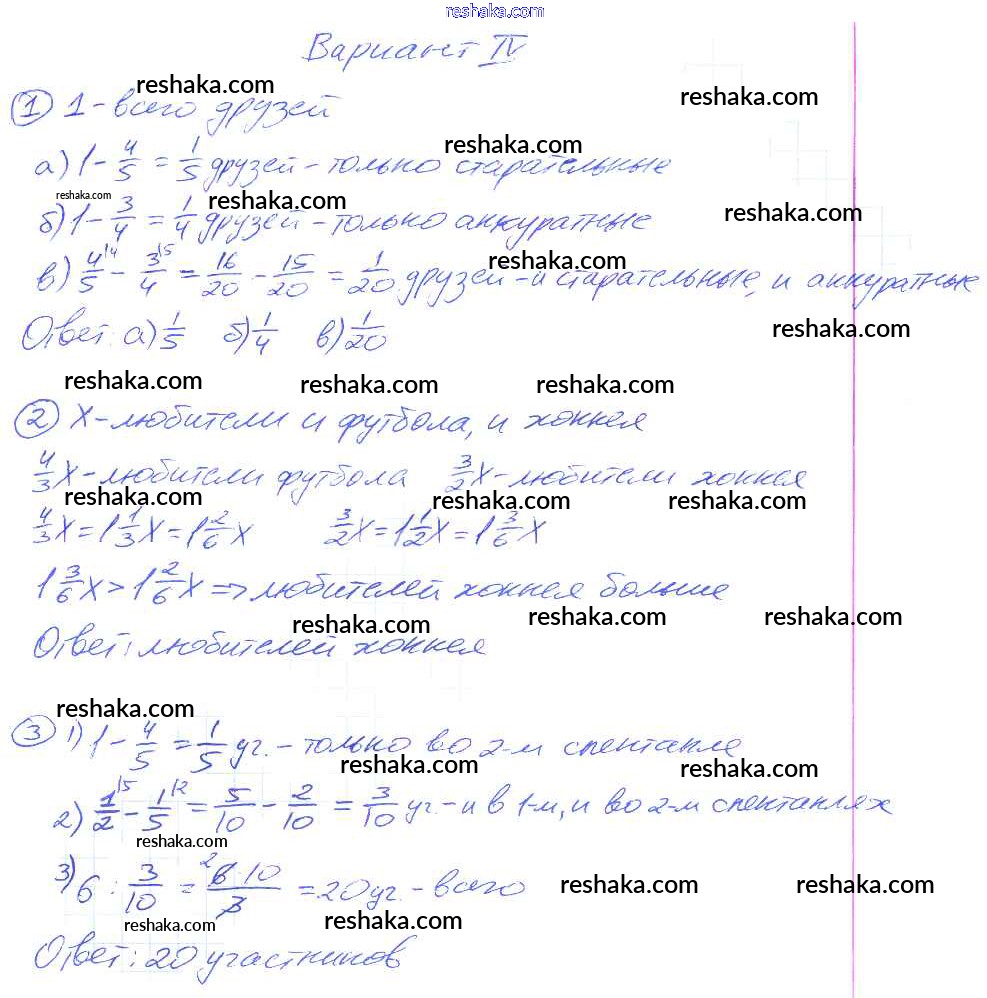 reshaka.com
Вариант IV
reshaka.com reshaka.com
① 1 - всего друзей
reshaka.com
а) 1 - 4/5 = 1/5 друзей - только старательные
reshaka.com reshaka.com reshaka.com
б) 1 - 3/4 = 1/4 друзей - только аккуратные
reshaka.com
в) 4/5^{\4} - 3/4^{\5} = 16/20 - 15/20 = 1/20 друзей - и старательные, и аккуратные
reshaka.com
Ответ: а) 1/5 б) 1/4 в) 1/20
reshaka.com reshaka.com reshaka.com
② X - любители и футбола, и хоккея
4/3 X - любители футбола 3/2 X - любители хоккея
reshaka.com reshaka.com reshaka.com
4/3 X = 1 1/3 X = 1 2/6 X 3/2 X = 1 1/2 X = 1 3/6 X
1 3/6 X > 1 2/6 X => любителей хоккея больше
reshaka.com reshaka.com reshaka.com
Ответ: любителей хоккея
reshaka.com
③ 1) 1 - 4/5 = 1/5 уч. - только во 2-м спектакле
reshaka.com reshaka.com
2) 1/2^{\5} - 1/5^{\2} = 5/10 - 2/10 = 3/10 уч. - и в 1-м, и во 2-м спектаклях
reshaka.com
3) 6 : 3/10 = 6·10/3 = 20 уч. - всего
reshaka.com reshaka.com
reshaka.com reshaka.com
Ответ: 20 участников